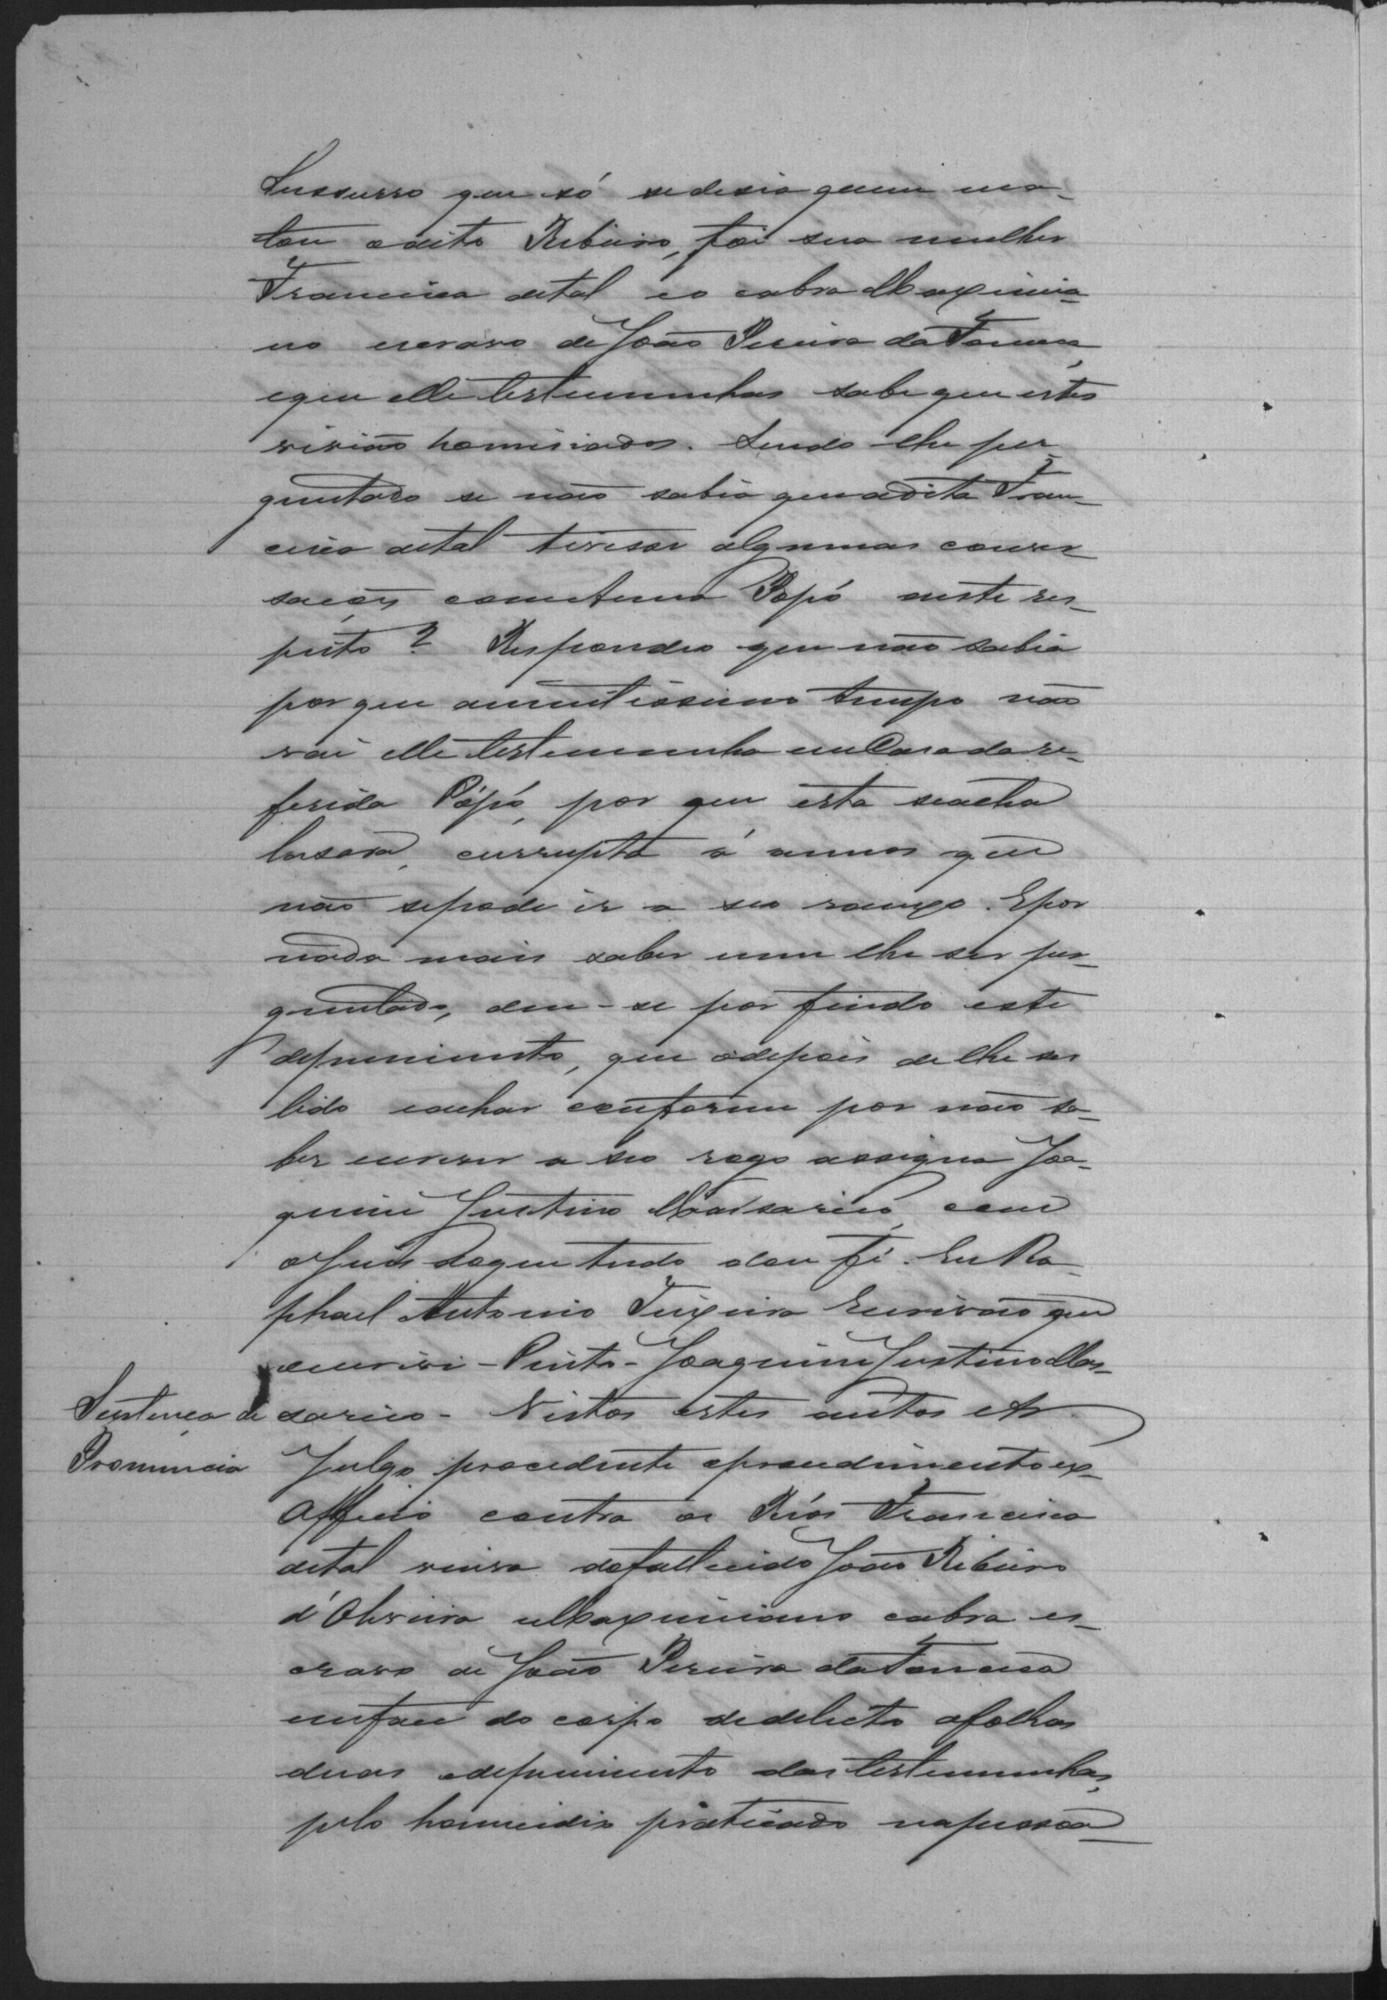 Sussurro que só sedesia quem ma-
tou odito Ribeiro, foi sua mulher
Francisca detal eo cabra Maximia-
no escravo de João Pereira da
eque elle testemunhas sabe que estes
vivião homisiados. Sendo lhe per-
guntado se não sabia quea dita Fran-
cisca detal tivesse algumas conver-
sações comituma Pópó neste res-
peito? Respondeo que não sabia
por que amuitissimo tempo não
vai elle testemunha em Casa da re-
ferida Pópó, por que esta seacha
lasara, currupta á annos que
não sepode ir a seu rancxo. Epor
nada mais saber nem lhe ser per-
guntado, deu-se por findo este
depuimento, que odepois de lhe ser
lido eachar conforme por não sa-
ber escrever a seo rogo assigna Joa-
quim Justino Massarico, com
oJuis doque tudo dou fé. Eu Ra-
phael Antonio Teixeira Escrivão que
escrivi - Pinto - Joaquim Justino Mas-
Sentença de
Pronuncia
sarico - Vistos estes autos etc
Julgo procedente oprocedimento ex-
Officio contra os Réos Francisca
detal viuva dofallecido João Ribeiro
d'Oliveira eMaximiano cabra es-
cravo de João Pereira da
emface do corpo dedelicto afolhas
duas edepuimento das testemunhas,
pelo homicidio praticado napessoa